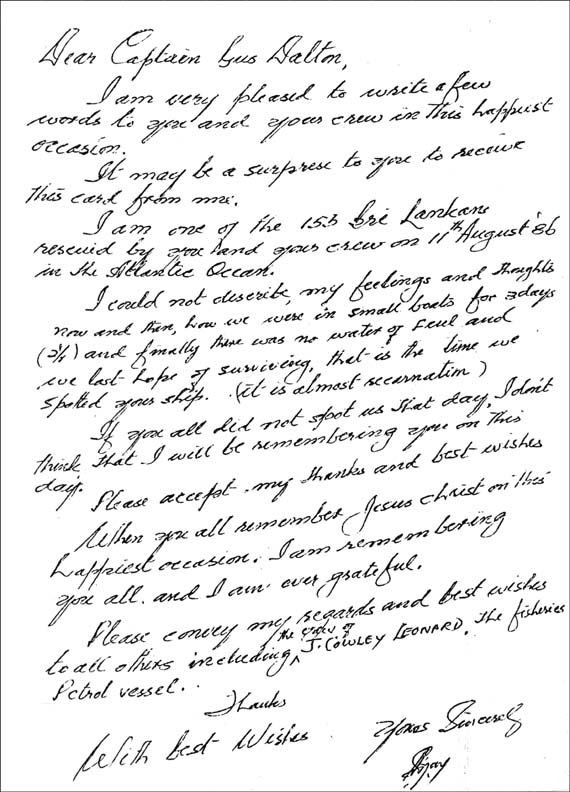 Dear Captain Gus Dalton,
I am very pleased to write a few
words to you and your crew in this happiest
occasion.
It may be a surprese to you to receive
this card from me.
I am one of the 153 Sri Lankans
rescued by you and your crew on 11th August '86
in the Atlantic Ocean.
I could not describe, my feelings and thoughts
now and then, how we were in small boats for 3 days
and finally there was no water & feul and
we last hope of surviving, that is the time we
spotted your ship. (it is almost recarnation)
If you all did not spot us that day, I don't
think that I will be remembering you on this
day.
Please accept my thanks and best wishes
When you all remember Jesus Christ on this
happiest occasion. I am remembering
you all. and I am ever grateful.
Please convey my regards and best wishes
to all others including the crew of J. COWLEY LEONARD. The fisheries
Petrol vessel..
Thanks
With best Wishes
Yores Sincerely